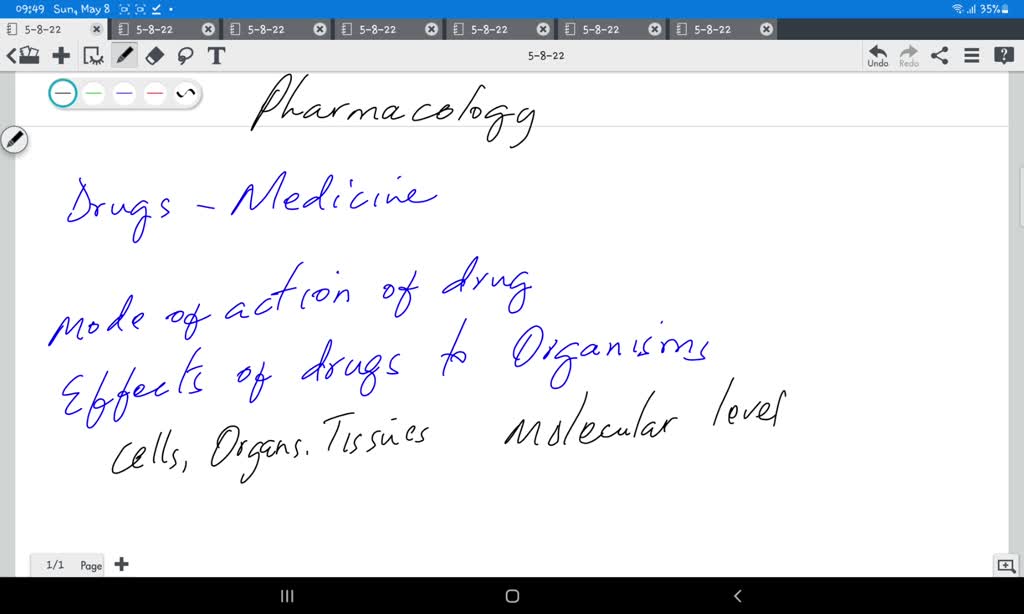 09:49 Sun, May 8 35%
5-8-22 5-8-22 5-8-22 5-8-22 5-8-22 5-8-22 5-8-22
T 5-8-22 Undo Redo
Pharmacology
Drugs - Medicine
Mode of action of drug
Effects of drugs to Organisms
Cells, Organs. Tissues Molecular level
1/1 Page